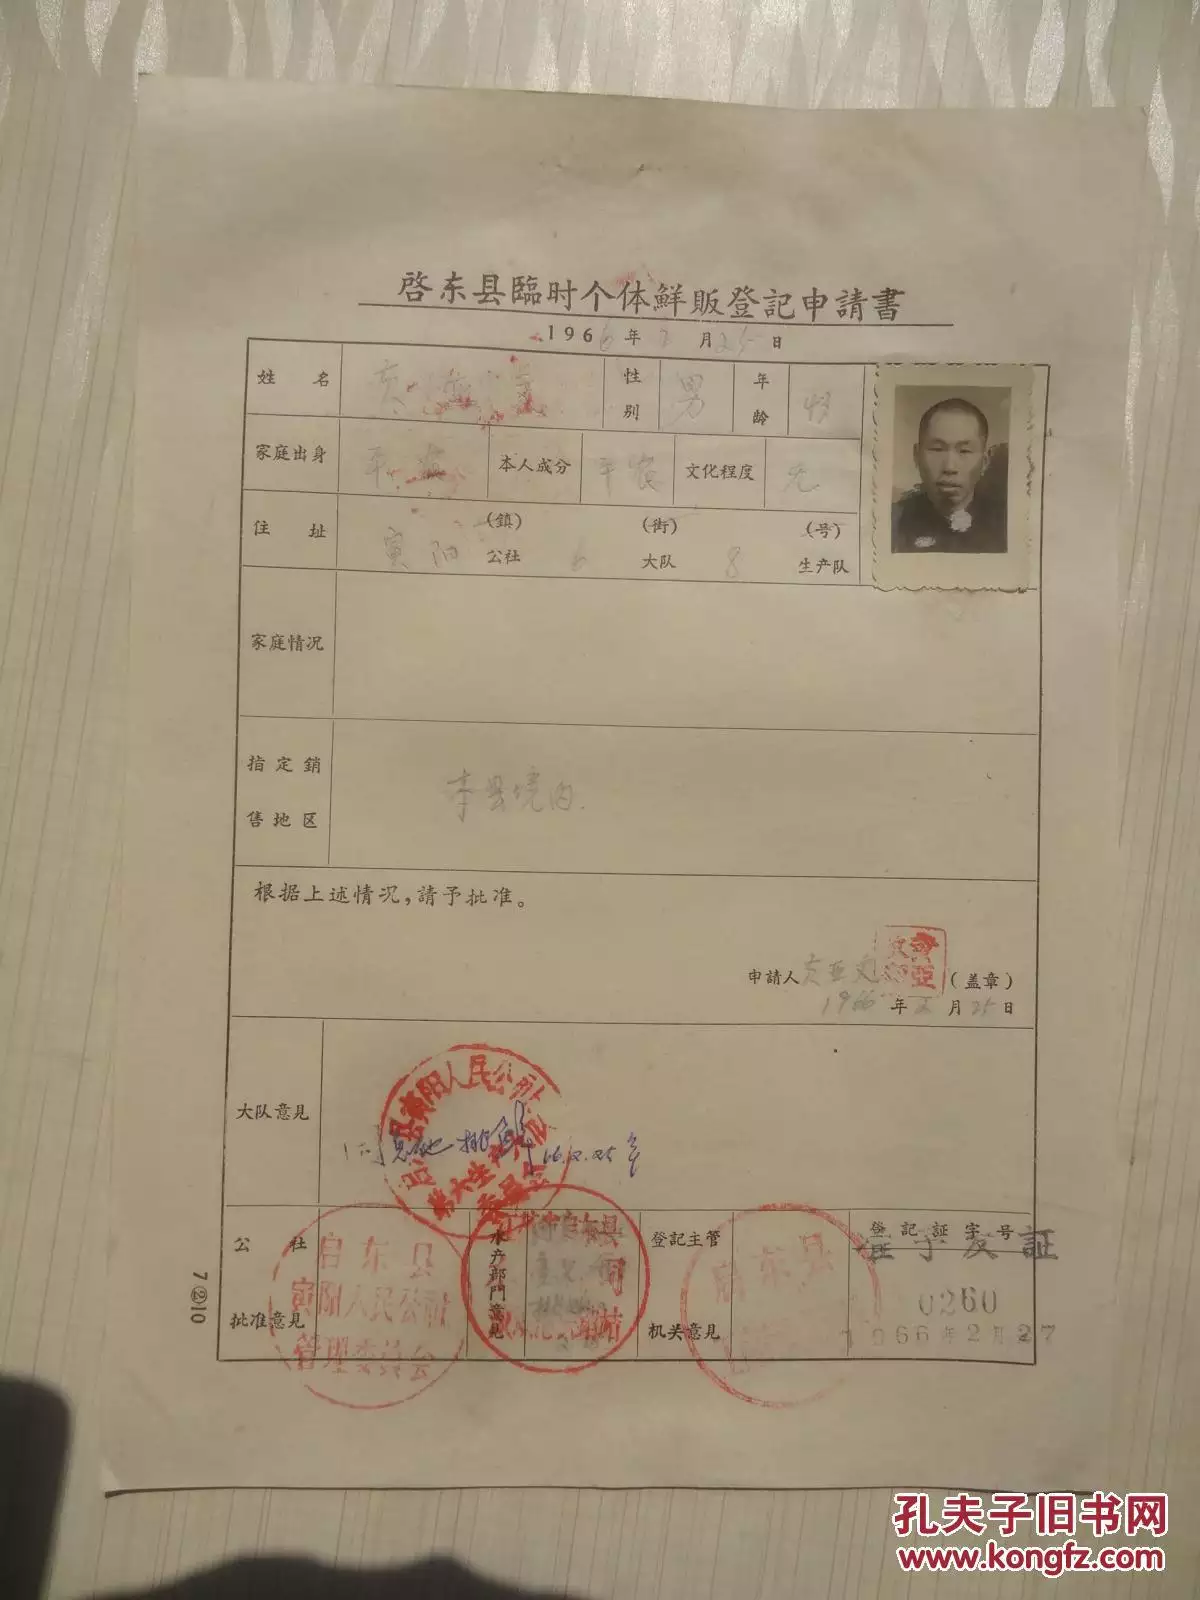 啓东县臨时个体鮮販登記申請書
1966年2月25日
姓名 性别 男 年龄
家庭出身 平农 本人成分 平农 文化程度 无
住址 (鎮) (街) (号)
寅阳公社 6 大队 8 生产队
家庭情况
指定銷售地区 本县境内.
根据上述情况,請予批准。
申請人 黄亚文 (盖章)
1966年2月25日
大队意見
寅阳人民公社
第六生产大队
66.2.25
公社批准意見
启东县
寅阳人民公社
管理委員会
水产部門意見
启东县
登記主管机关意見
东县
登記証字号
准予发証
0260
1966年2月27
7②10
孔夫子旧书网
www.kongfz.com